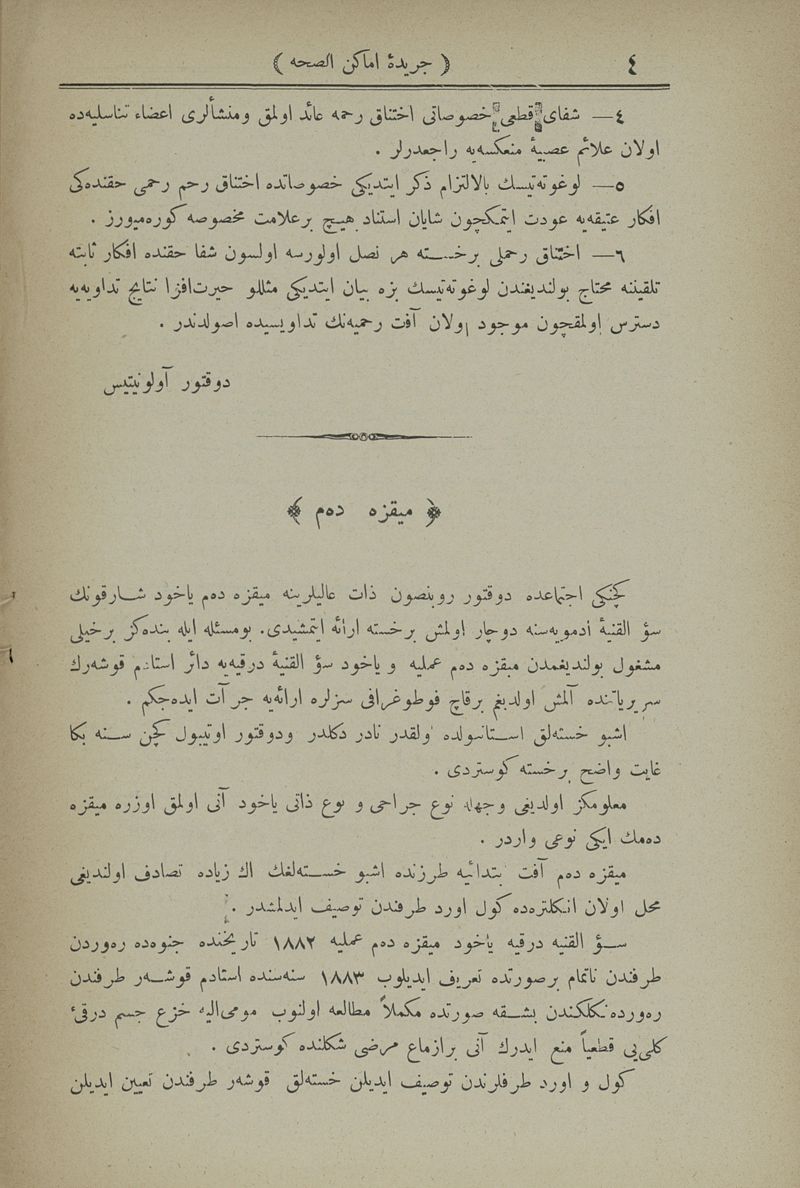 ٤
( جریدۀ اماکن الصحه )
٤ — شفای قطعی خصوصاتی اختناق رحمه عائد اولمق ومنشألری اعضاء تناسلیه‌ده
اولان علائم عصبیۀ منعکسه‌یه راجعدرلر .
٥ — لوغوته‌تیسك بالالتزام ذكر ایتدیكی خصوصاتده اختناق رحم رحمی حقنده‌كی
افكار عتیقه‌یه عودت ایتمكچون شایان استناد هیچ برعلامت مخصوصه كوره‌میورز .
٦ — اختناق رحملی برخسته هر نصل اولورسه اولسون شفا حقنده افكار ثابته
تلقیننه محتاج بولندیغندن لوغوته‌تیسك بزه بیان ایتدیكی مثللو حیرت‌افزا نتایج تداویه‌یه
دسترس اولمقچون موجود اولان آفت رحمیه‌نك تداویسیده اصولدندر .
دوقتور آولونیتیس
﴿ میقزه ده‌م ﴾
كچنكی اجتماعده دوقتور روبنصون ذات عالیلرینه میقزه ده‌م یاخود شارقونك
سؤ القنیۀ أدمویه‌سنه دوچار اولمش برخسته ارائه ایتمشیدی. بومسئله ایله بنده‌كز برخیلی
مشغول بولندیغمدن میقزه ده‌م عملیه و یاخود سؤ القنیۀ درقیه‌یه دائر استادم قوشه‌رك
سریریاتنده آلمش اولدیغم برقاچ فوطوغرافی سزلره ارائه‌یه جرأت ایده‌جكم .
اشبو خسته‌لق استانبولده اولقدر نادر دكلدر ودوقتور اوتیبول كچن سنه بكا
غایت واضح برخسته كوستردی .
معلومكز اولدیغی وجهله نوع جراحی و نوع ذاتی یاخود آنی اولمق اوزره میقزه
ده‌مك ایكی نوعی واردر .
میقزه ده‌م آفت ابتدائیه طرزنده اشبو خسته‌لغك اك زیاده تصادف اولندیغی
محل اولان انكلتره‌ده كول اورد طرفندن توصیف ایدلمشدر .
سؤ القنیه درقیه یاخود میقزه ده‌م عملیه ١٨٨٢ تاریخنده جنوه‌ده ره‌وردن
طرفندن ناتمام برصورتده تعریف ایدیلوب ١٨٨٣ سنه‌سنده استادم قوشه‌ر طرفندن
ره‌ورده‌نككندن بشقه صورتده مكملاً مطالعه اولنوب مومی‌الیه خزع جسم درقیٔ
كلی‌یی قطعیاً منع ایدرك آنی برازماع مرضی شكلنده كوستردی .
كول و اورد طرفلرندن توصیف ایدیلن خسته‌لق قوشه‌ر طرفندن تعیین ایدیلن